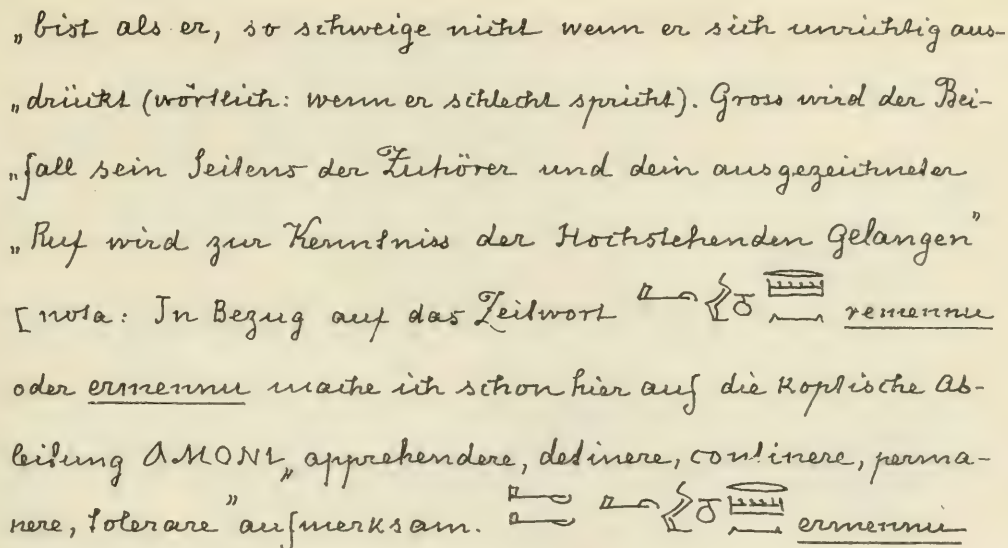 „bist als er, so schweige nicht wenn er sich unrichtig aus-
„drückt (wörtlich: wenn er schlecht spricht). Gross wird der Bei-
„fall sein Seitens der Zuhörer und dein ausgezeichneter
„Ruf wird zur Kenntniss der Hochstehenden gelangen”
[nota: In Bezug auf das Zeitwort remennu
oder ermennu mache ich schon hier auf die Koptische Ab-
leitung ⲀⲘⲞⲚⲒ „apprehendere, detinere, continere, perma-
nere, tolerare” aufmerksam. ermennu